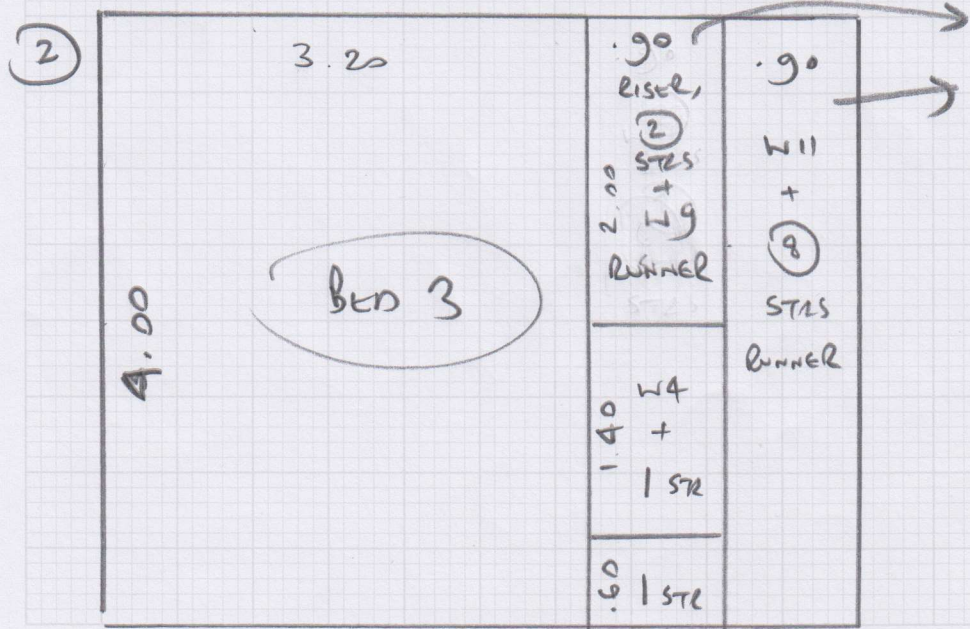 2
3.20
4.00
BED 3
.90
RISER,
2
STRS
+
W9
RUNNER
2.00
1.40
W4
+
1 STR
.60
1 STR
.90
W11
+
8
STRS
RUNNER